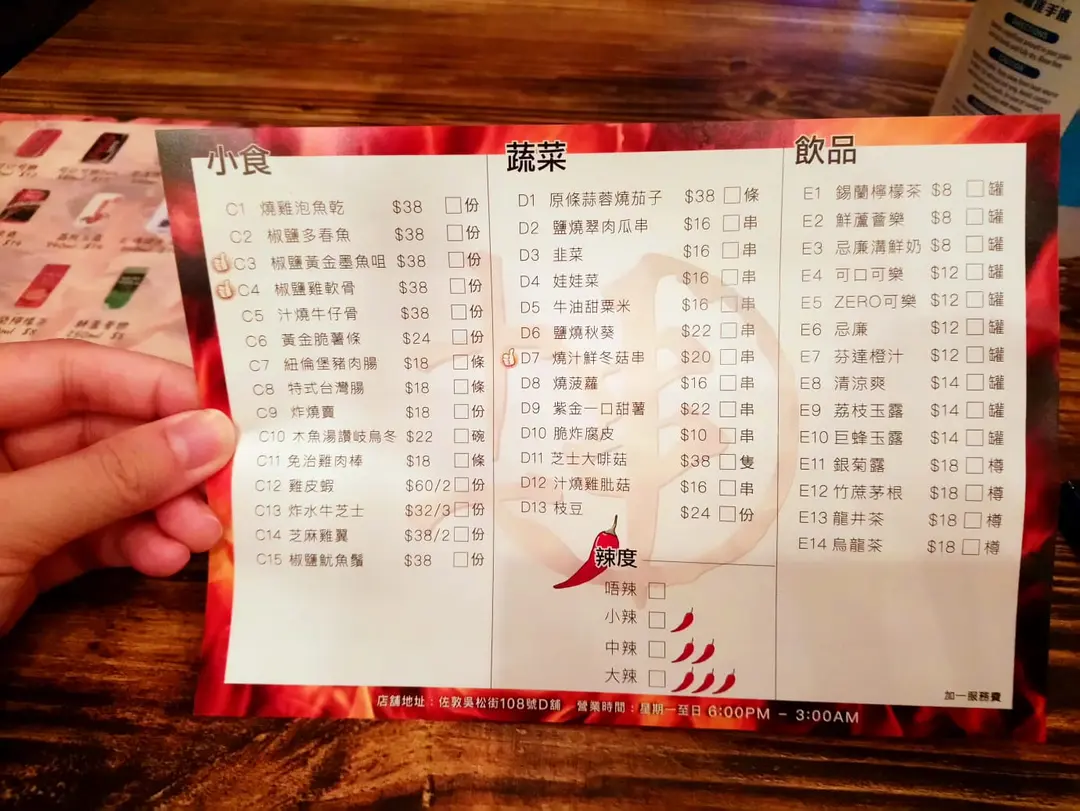 小食
C1 燒雞泡魚乾 $38 份
C2 椒鹽多春魚 $38 份
C3 椒鹽黃金墨魚咀 $38 份
C4 椒鹽雞軟骨 $38 份
C5 汁燒牛仔骨 $38 份
C6 黃金脆薯條 $24 份
C7 紐倫堡豬肉腸 $18 條
C8 特式台灣腸 $18 條
C9 炸燒賣 $18 份
C10 木魚湯讚岐烏冬 $22 碗
C11 免治雞肉棒 $18 條
C12 雞皮蝦 $60/2 份
C13 炸水牛芝士 $32/3 份
C14 芝麻雞翼 $38/2 份
C15 椒鹽魷魚鬚 $38 份
蔬菜
D1 原條蒜蓉燒茄子 $38 條
D2 鹽燒翠肉瓜串 $16 串
D3 韭菜 $16 串
D4 娃娃菜 $16 串
D5 牛油甜粟米 $16 串
D6 鹽燒秋葵 $22 串
D7 燒汁鮮冬菇串 $20 串
D8 燒菠蘿 $16 串
D9 紫金一口甜薯 $22 串
D10 脆炸腐皮 $10 串
D11 芝士大啡菇 $38 隻
D12 汁燒雞肶菇 $16 串
D13 枝豆 $24 份
辣度
唔辣
小辣
中辣
大辣
飲品
E1 錫蘭檸檬茶 $8 罐
E2 鮮蘆薈樂 $8 罐
E3 忌廉溝鮮奶 $8 罐
E4 可口可樂 $12 罐
E5 ZERO可樂 $12 罐
E6 忌廉 $12 罐
E7 芬達橙汁 $12 罐
E8 清涼爽 $14 罐
E9 荔枝玉露 $14 罐
E10 巨蜂玉露 $14 罐
E11 銀菊露 $18 樽
E12 竹蔗茅根 $18 樽
E13 龍井茶 $18 樽
E14 烏龍茶 $18 樽
加一服務費
店舖地址：佐敦吳松街108號D舖 營業時間：星期一至日 6:00PM - 3:00AM